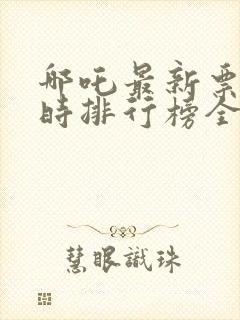 哪吒最新票
时排行榜全
慧眼識珠